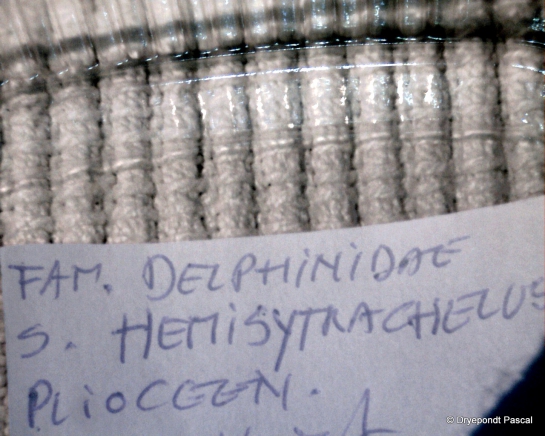 FAM. DELPHINIDAE
S. HEMISYTRACHELUS
PLIOCEEN.
© Dryepondt Pascal